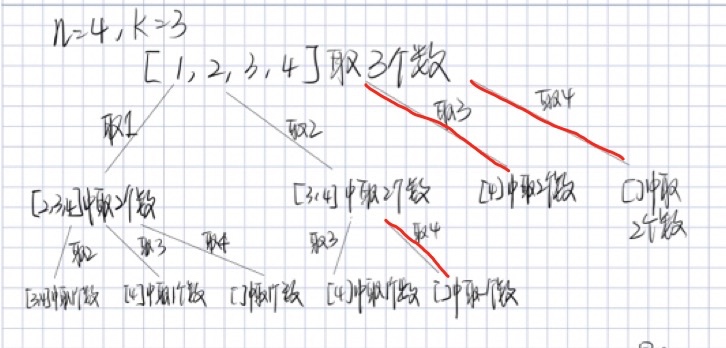 n=4,k=3
[1,2,3,4]取3个数
取1 取2 取3 取4
[2,3,4]中取2个数 [3,4]中取2个数 [4]中取2个数 []中取
2个数
取2 取3 取4 取3 取4
[3,4]中取1个数 [4]中取1个数 []中取1个数 [4]中取1个数 []中取1个数